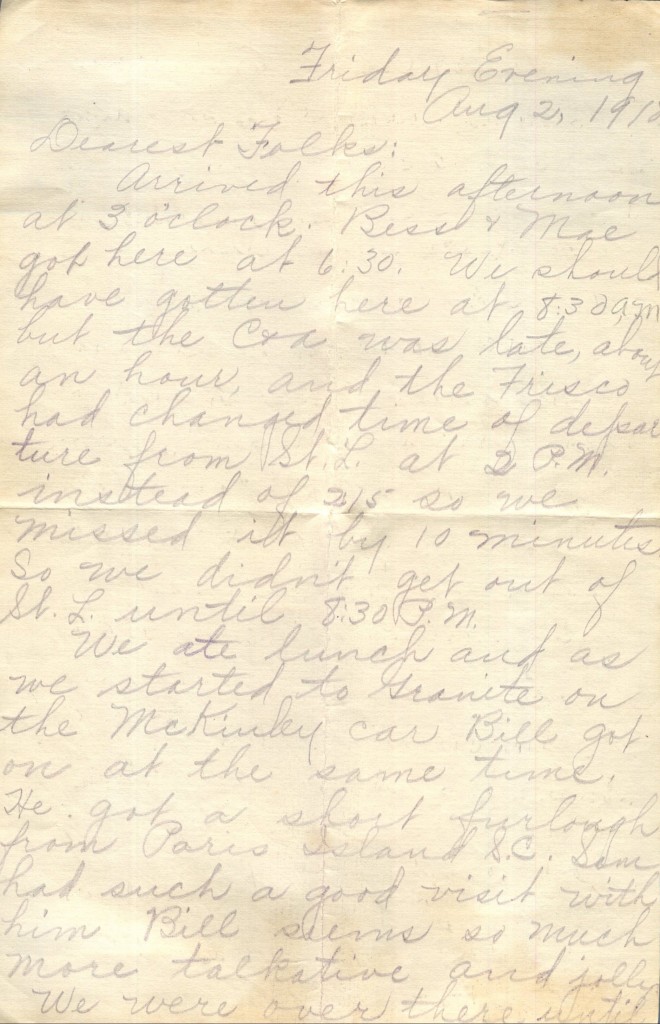 Friday Evening
Aug. 2, 1918
Dearest Folks:
Arrived this afternoon
at 3 o'clock. Bess & Mae
got here at 6:30. We should
have gotten here at 8:30 a.m
but the C&A was late, about
an hour, and the Frisco
had changed time of depar
ture from St. L. at 2 P.M.
instead of 2:15 so we
missed it by 10 minutes
So we didn't get out of
St. L. until 8:30 P.M.
We ate lunch and as
we started to Granite on
the McKinley car Bill got
on at the same time.
He got a short furlough
from Paris Island S.C. Sam
had such a good visit with
him Bill seems so much
more talkative and jolly
We were over there until